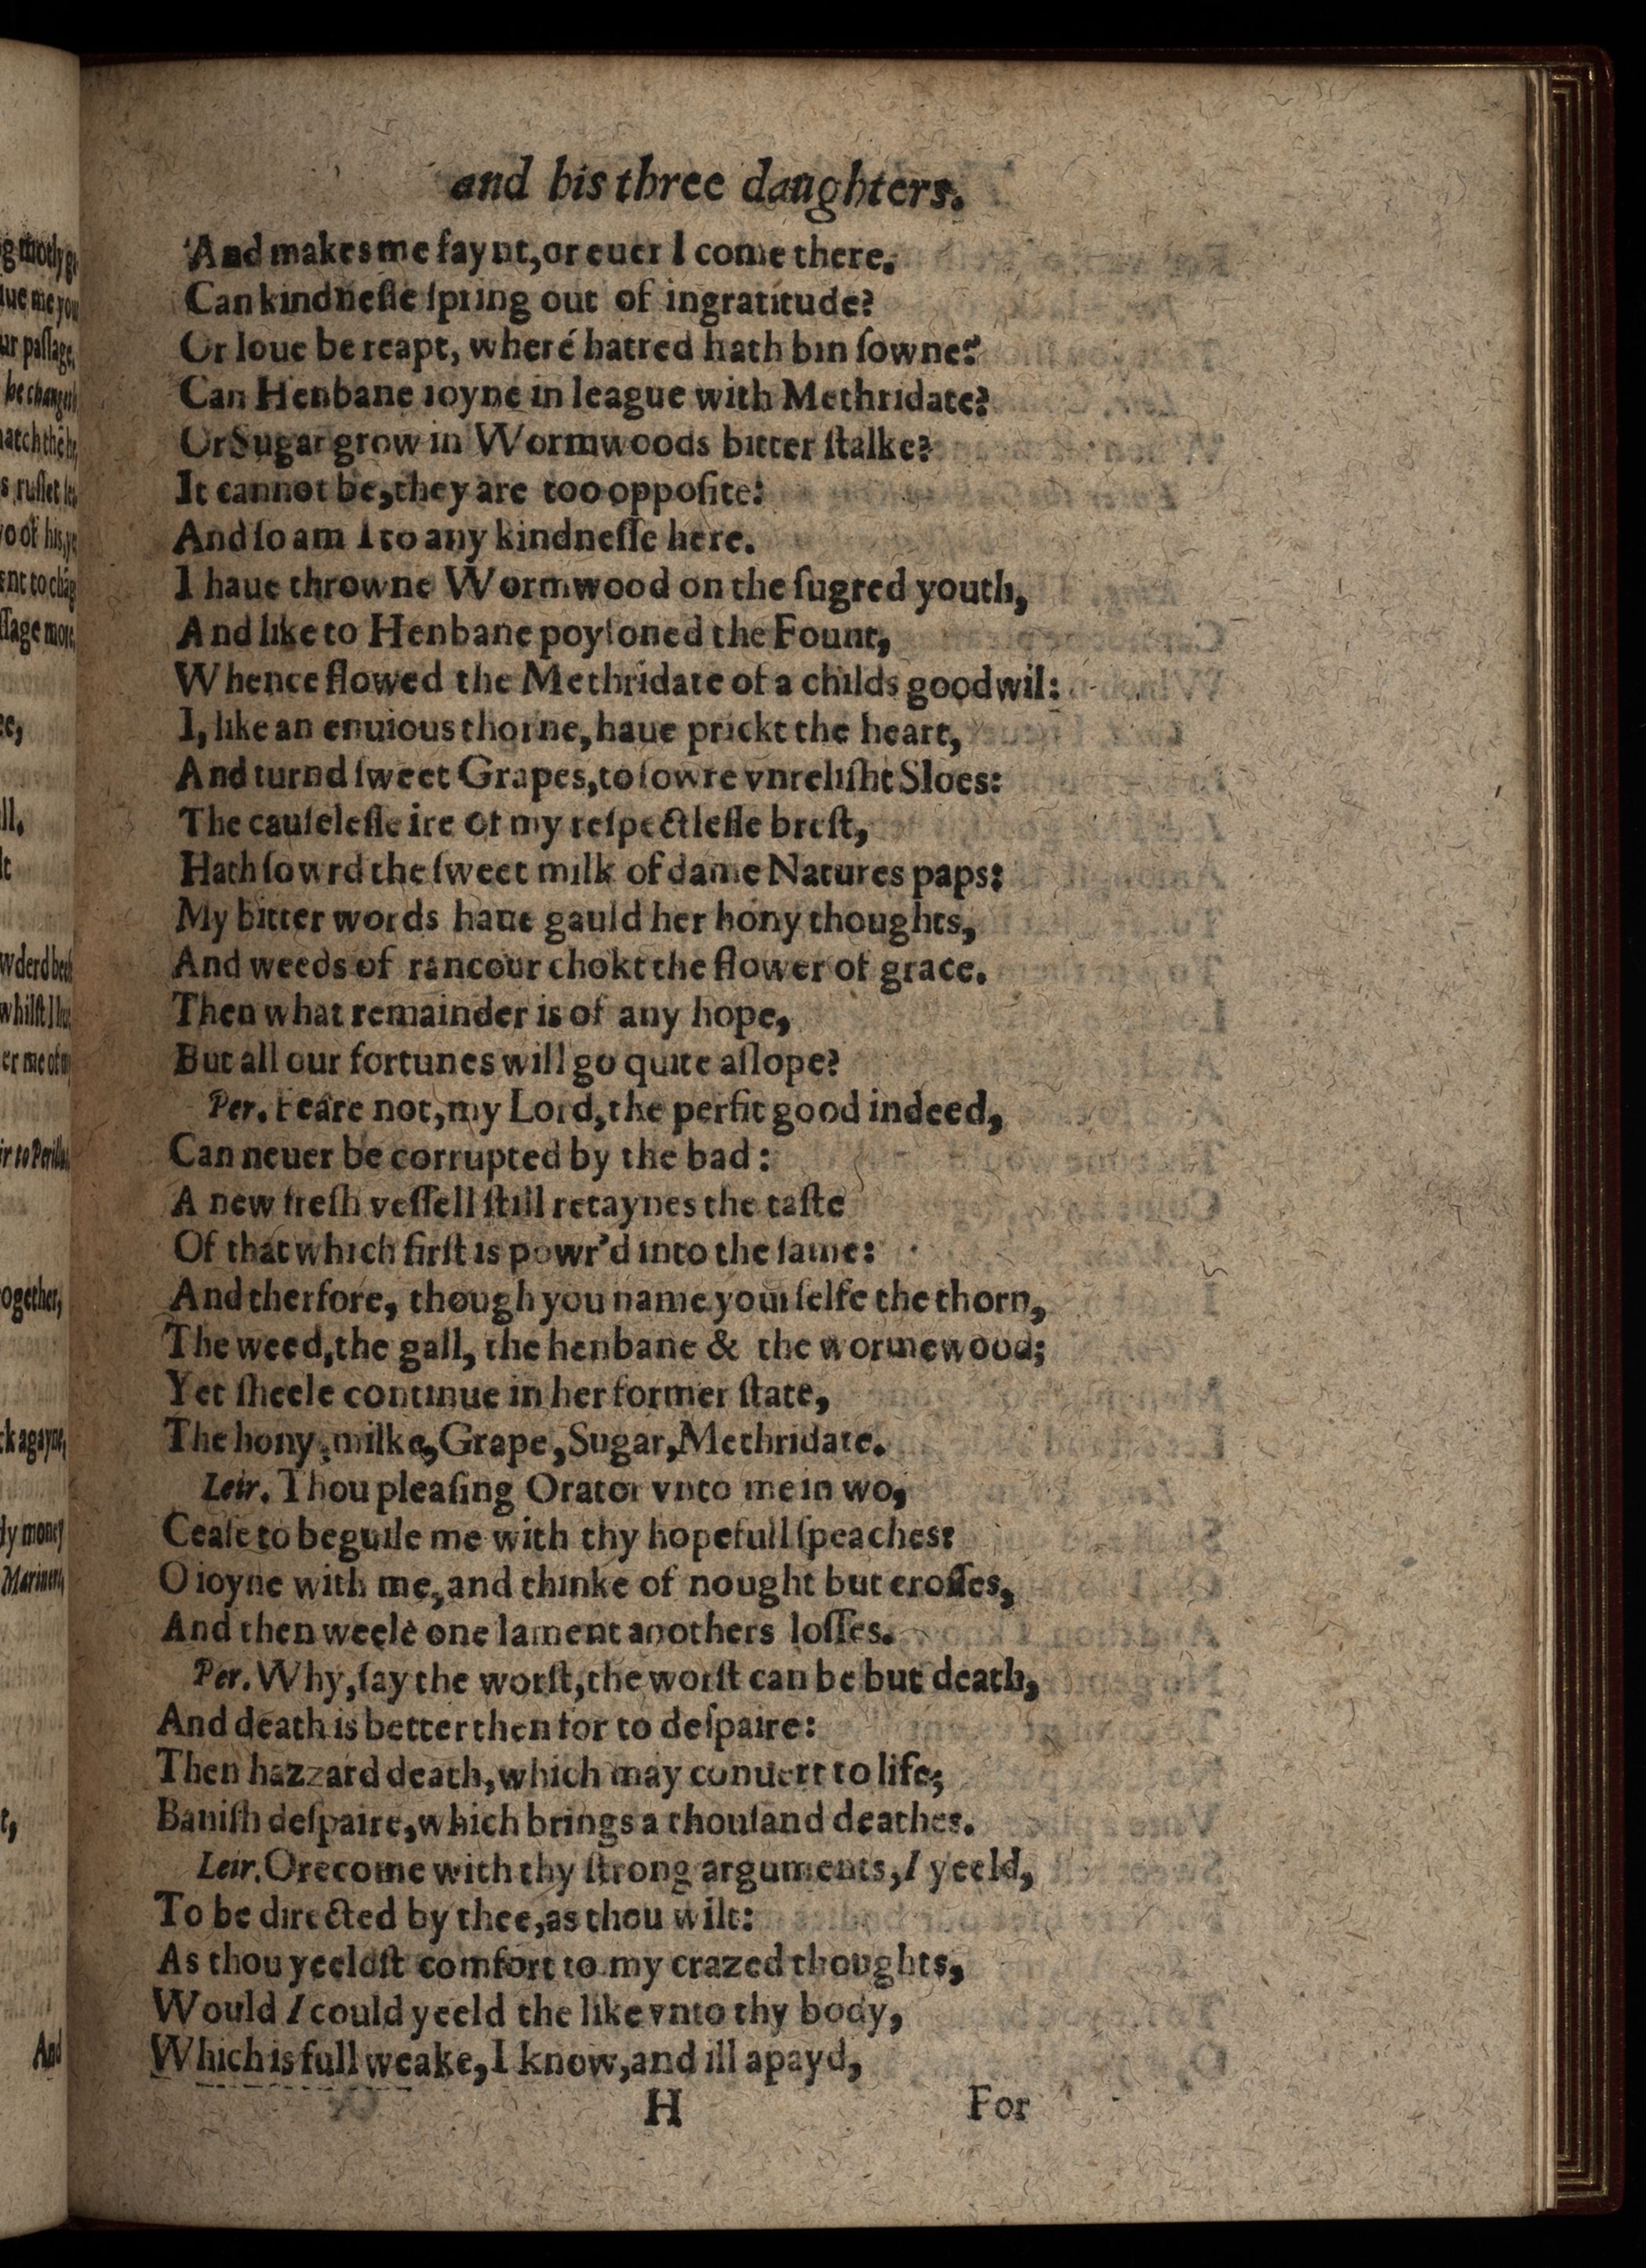 and his three daughters.
And makes me faynt, or euer I come there.
Can kindneſſe ſpring out of ingratitude?
Or loue be reapt, where hatred hath bin ſowne?
Can Henbane ioyne in league with Methridate?
Or Sugar grow in Wormwoods bitter ſtalke?
It cannot be, they are too oppoſite:
And ſo am I to any kindneſſe here.
I haue throwne Wormwood on the ſugred youth,
And like to Henbane poyſoned the Fount,
Whence flowed the Methridate of a childs goodwil:
I, like an enuious thorne, haue prickt the heart,
And turnd ſweet Grapes, to ſowre vnreliſht Sloes:
The cauſeleſſe ire of my reſpectleſſe breſt,
Hath ſowrd the ſweet milk of dame Natures paps:
My bitter words haue gauld her hony thoughts,
And weeds of rancour chokt the flower of grace.
Then what remainder is of any hope,
But all our fortunes will go quite aſlope?
Per. Feare not, my Lord, the perfit good indeed,
Can neuer be corrupted by the bad:
A new freſh veſſell ſtill retaynes the taſte
Of that which firſt is powr'd into the ſame:
And therfore, though you name yourſelfe the thorn,
The weed, the gall, the henbane & the wormewood;
Yet ſheele continue in her former ſtate,
The hony, milke, Grape, Sugar, Methridate.
Leir. Thou pleaſing Orator vnto me in wo,
Ceaſe to beguile me with thy hopefull ſpeaches:
O ioyne with me, and thinke of nought but croſſes,
And then weele one lament anothers loſſes.
Per. Why, ſay the worſt, the worſt can be but death,
And death is better then for to deſpaire:
Then hazzard death, which may conuert to life;
Baniſh deſpaire, which brings a thouſand deathes.
Leir. Orecome with thy ſtrong arguments, I yeeld,
To be directed by thee, as thou wilt:
As thou yeeldſt comfort to my crazed thoughts,
Would I could yeeld the like vnto thy body,
Which is full weake, I know, and ill apayd,
H For